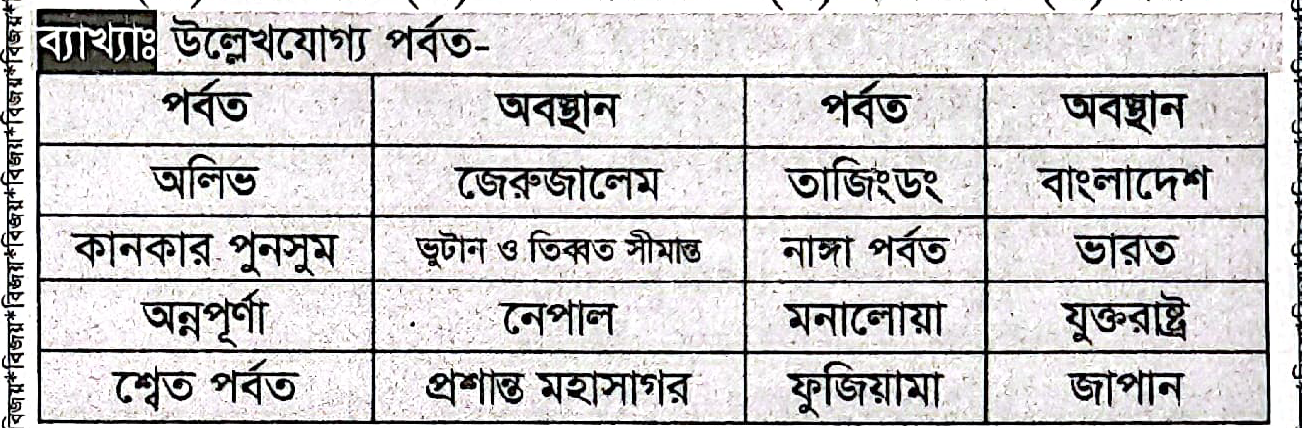 ব্যাখ্যাঃ উল্লেখযোগ্য পর্বত-
পর্বত অবস্থান পর্বত অবস্থান
অলিভ জেরুজালেম তাজিংডং বাংলাদেশ
কানকার পুনসুম ভুটান ও তিব্বত সীমান্ত নাঙ্গা পর্বত ভারত
অন্নপূর্ণা নেপাল মনালোয়া যুক্তরাষ্ট্র
শ্বেত পর্বত প্রশান্ত মহাসাগর ফুজিয়ামা জাপান
বিজয়*বিজয়*বিজয়*বিজয়*বিজয়*বিজয়*